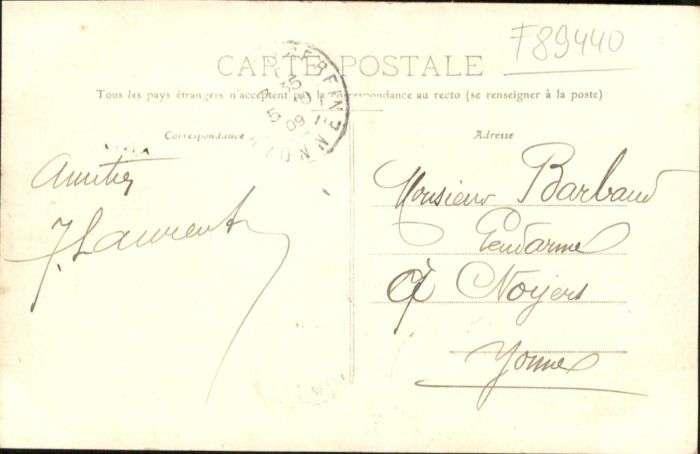 F89440
CARTE POSTALE
Tous les pays étrangers n'acceptent pas la correspondance au recto (se renseigner à la poste)
Correspondance
Adresse
Amitiés
J. Laurent
Monsieur Barbaud
Gendarme
à Noyers
Yonne
09